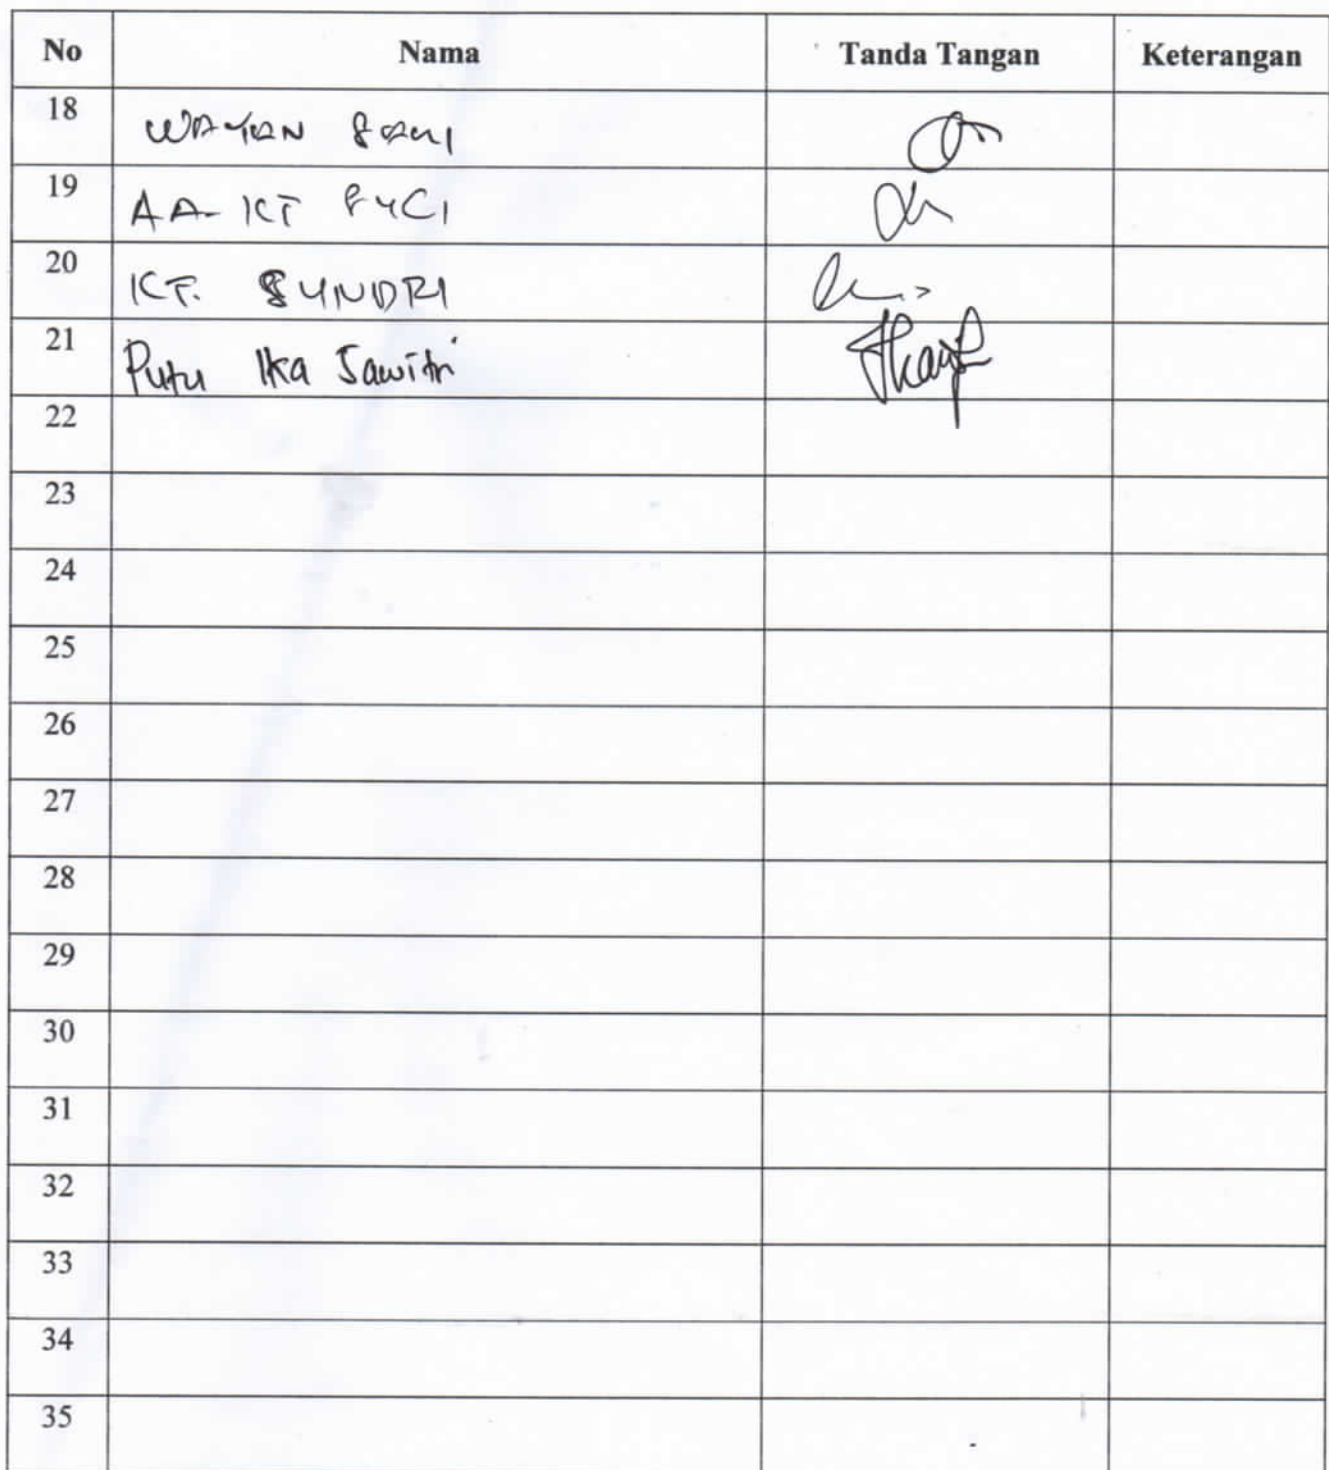 No Nama Tanda Tangan Keterangan
18 WAYAN
19 AA. KT SUCI
20 KT. SUNDRI
21 Putu Ika Sawitri
22
23
24
25
26
27
28
29
30
31
32
33
34
35